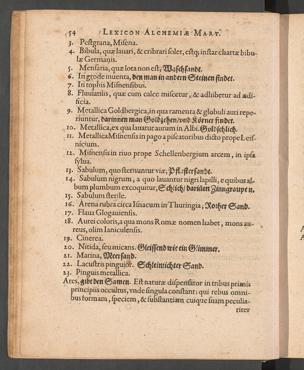 54 LEXICON ALCHEMIÆ MART.
3. Pestgrana, Misena.
4. Bibula, quæ lauari, & cribrari solet, estq; instar chartæ bibu-
læ Germanis.
5. Mensaria, quæ lota non est, Waschsandt.
6. In grode inuenta, den man in andern Steinen findet.
7. In tophis Misnensibus.
8. Fluuialilis, quæ cum calce miscetur, & adhibetur ad ædi-
ficia.
9. Metallica Goldbergica, in qua ramenta & globuli auri repe-
riuntur, darinnen man Goldzehen/und Körner findet.
10. Metallica, ex qua lauatur aurum in Albi. Goldschlich.
11. Metallica Misnensis in pago a piscatoribus dicto prope Leis-
nicium.
12. Misnensis in riuo prope Schellenbergium arcem, in ipsa
sylua.
13. Sabulum, quo sternuntur viæ, Pflastersandt.
14. Sabulum nigrum, a quo lauantur nigri lapilli, e quibus al-
bum plumbum excoquitur, Schlich/ darinnen Zinngraupen.
15. Sabulum sterile.
16. Arena rubra circa Isnacum in Thuringia, Rother Sand.
17. Flaua Glogauiensis.
18. Aurei coloris, a qua mons Romæ nomen habet, mons au-
reus, olim Ianiculensis.
19. Cinerea.
20. Nitida, seu micans. Gleissend wie ein Glimmer.
21. Marina, Meersand.
22. Lacustris pinguis. Schleimichter Sand.
23. Pinguis metallica.
Ares, gibt den Samen. Est naturæ dispensator in tribus primis
principiis occultus, vnde singula constant: qui rebus omni-
bus formam, speciem, & substantiam cuique suam peculia-
riter